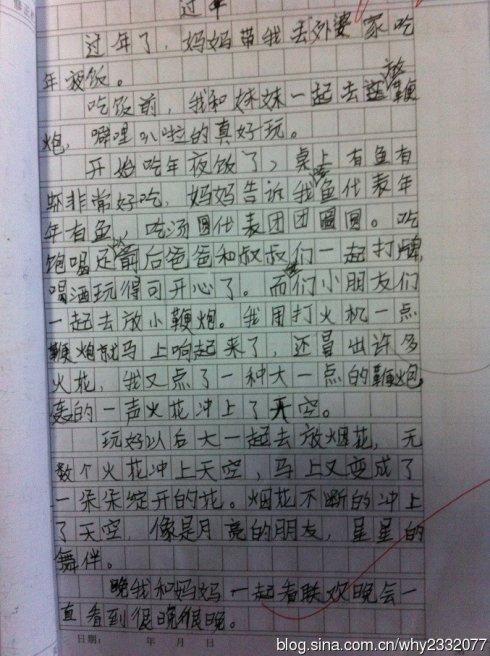 过年
过年了，妈妈带我去外婆家吃
年夜饭。
吃饭前，我和妹妹一起去放鞭
炮，噼哩叭啦的真好玩。
开始吃年夜饭了，桌上有鱼有
虾非常好吃，妈妈告诉我鱼代表年
年有鱼，吃汤圆代表团团圆圆。吃
饱喝足前后爸爸和叔叔们一起打牌
喝酒玩得可开心了。而们小朋友们
一起去放小鞭炮。我用打火机一点
鞭炮就马上响起来了，还冒出许多
火花，我又点了一种大一点的鞭炮
轰的一声火花冲上了天空。
玩好以后大一起去放烟花，无
数个火花冲上天空，马上又变成了
一朵朵绽开的花。烟花不断的冲上
了天空，像是月亮的朋友，星星的
舞伴。
晚我和妈妈一起看联欢晚会一
直看到很晚很晚。
日期： 年 月 日
blog.sina.com.cn/why2332077